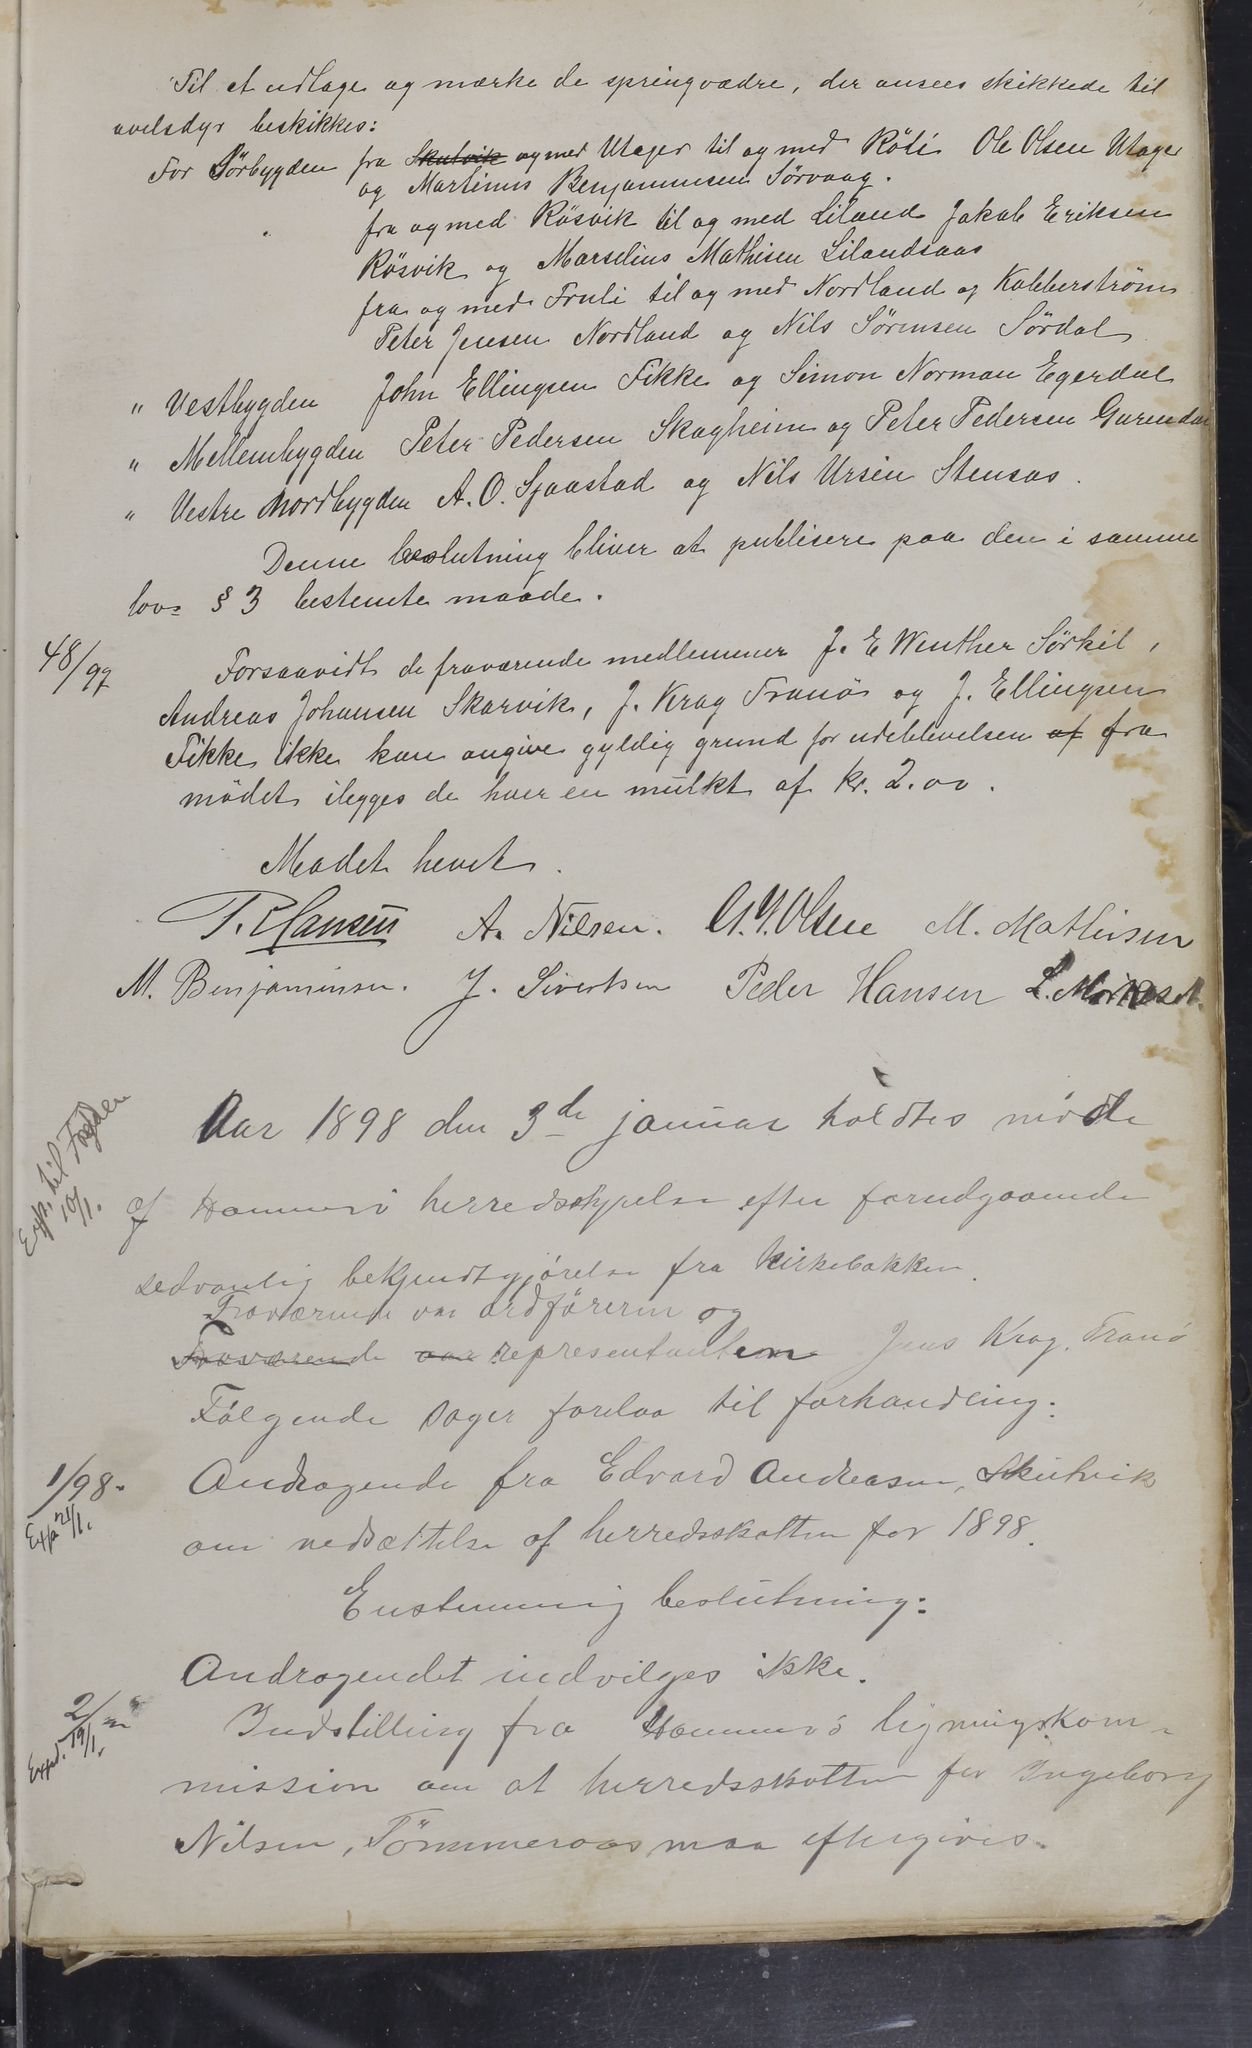 Til at udtage og mærke de springvædre, der ansees skikkede til
avelsdyr beskikkes:
For Sørbygden fra Skutvik og med Utager til og med Röti Ole Olsen Utager
og Martinus Benjaminsen Sørvaag.
fra og med Rösvik til og med Liland Jakob Eriksen
Rösvik og Marselius Mathisen Lilandsaas
fra og med Fruli til og med Nordland og Kobberstrøm
Peter Jensen Nordland og Nils Sørensen Sørdal
" Vestbygden John Ellingsen Fikke og Simon Norman Egerdal
" Mellembygden Peter Pedersen Skogheim og Peter Pedersen
" Vestre Nordbygden A. O. Sjaastad og Nils Ursin Stensas.
Denne beslutning bliver at publisere paa den i samme
lov= § 3 bestemte maade.
48/97 Forsaavidt de fraværende medlemmer J. E Winther Sørkil,
Andreas Johansen Skarvik, J. Krag Tranö og J. Ellingsen
Fikke ikke kan angive gyldig grund for udeblivelsen af fra
mödet ilegges de hver en mulkt af kr. 2.00.
Mødet hevet.
P. Hansen A. Nilsen. O. J. Olsen M. Mathisen
M. Benjaminsen. J. Sivertsen Peder Hansen L. Mortensen.
Exp. til Fogden
10/1.
Aar 1898 den 3de januar holdtes møde
af Hammerö herredsstyrelse efter forudgaaende
sedvanlig bekjendtgjörelse fra kirkebakken.
Fraværende var ordföreren og
Fraværende var representanten Jens Krag, Tranö
Fölgende sager forelaa til forhandling:
1/98. Andragende fra Edvard Andreasen, Skutvik
Exp 21/1.
om nedsættelse af herredsskatten for 1898.
Enstemmig beslutning:
Andragendet indvilges ikke.
2/98 Indstilling fra Hammerö ligningskom-
Exped. 19/1.
mission om at herredsskatten for Ingeborg
Nilsen, Tömmeraas maa eftergives.